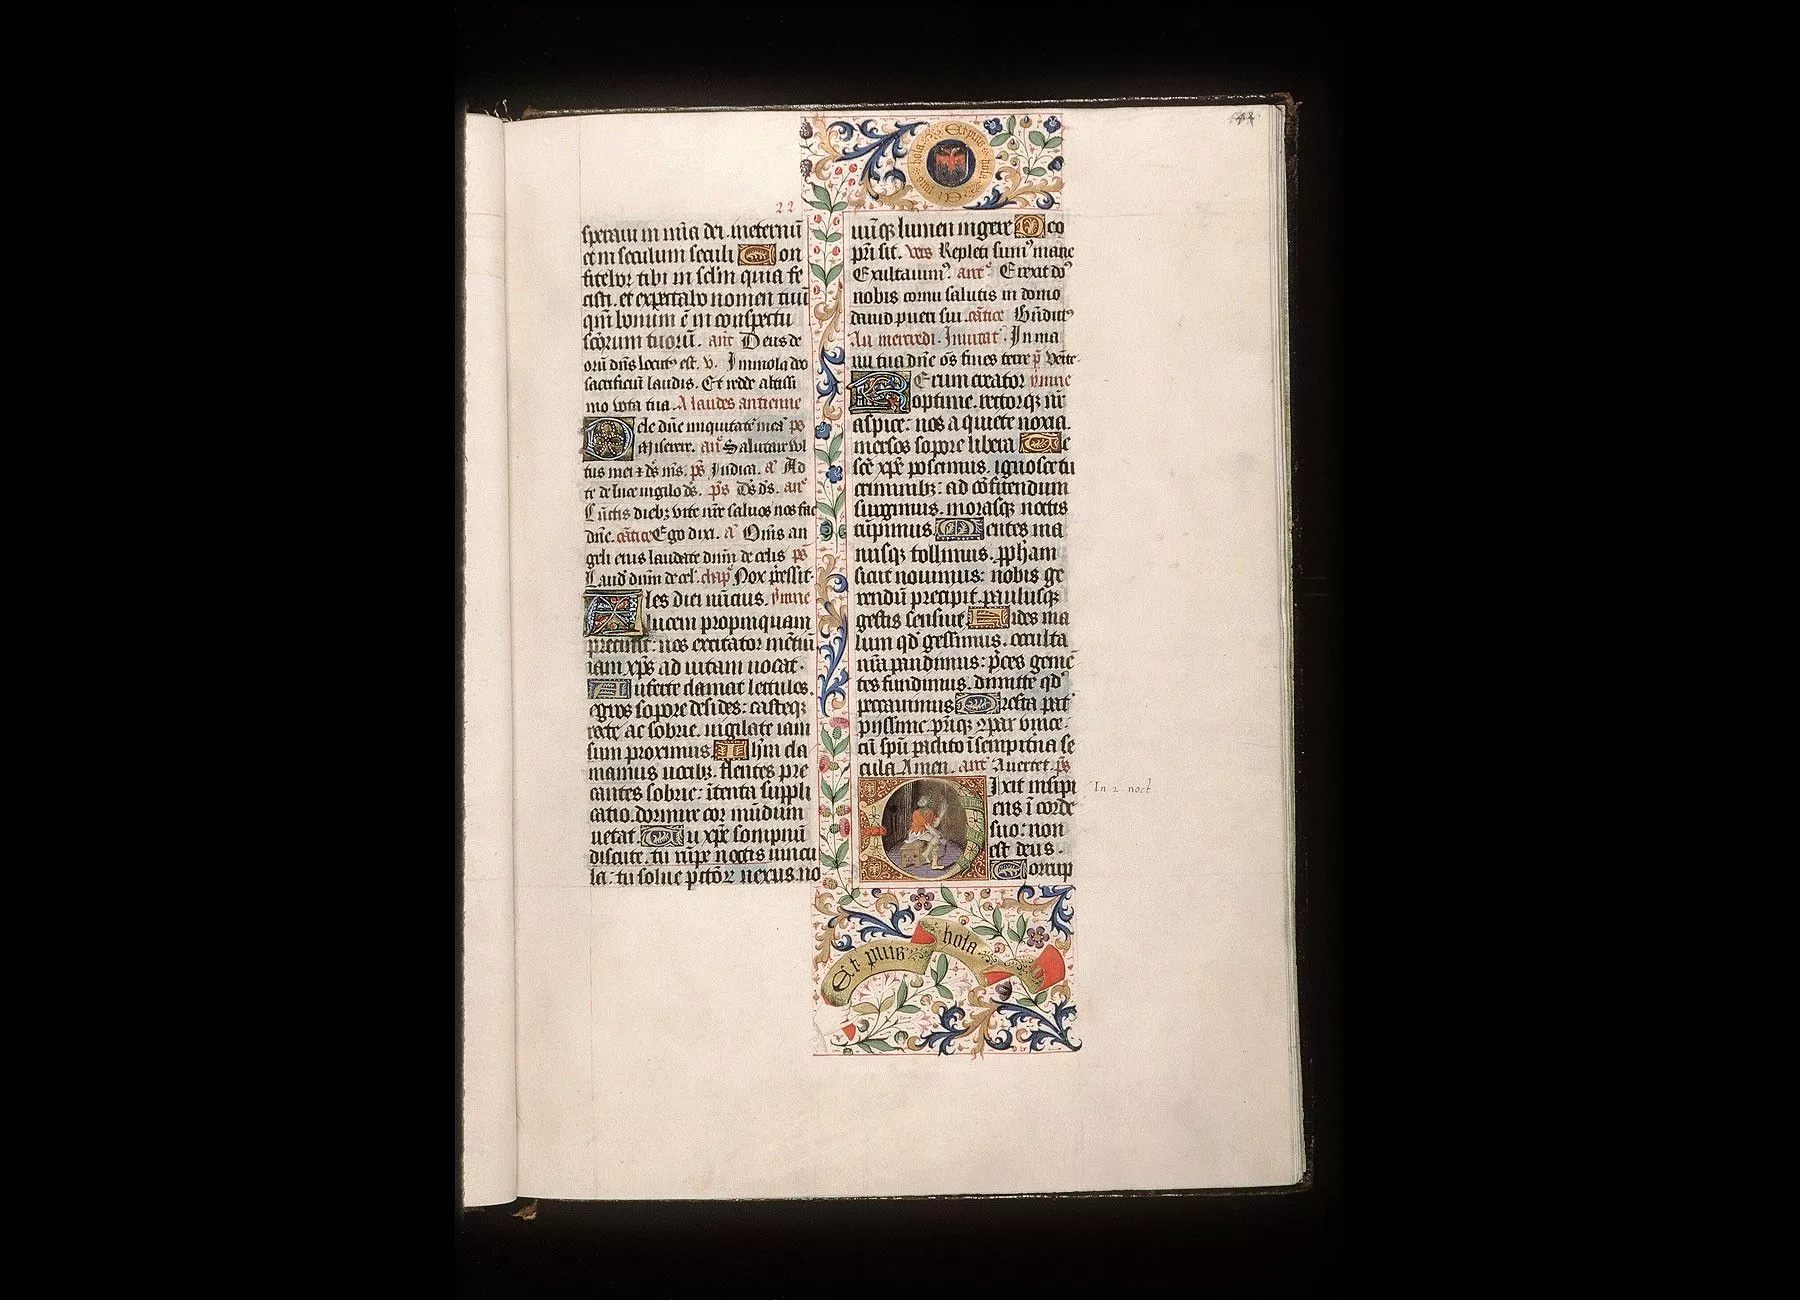 22
speraui in mīa dei. ineternū
et in seculum seculi Con
fitebor tibi in sclm quia fe
cisti. et expectabo nomen tuū
qm bonum ē in conspectu
scōrum tuorū. ant Deus de
orū dns locut⁹ est. v. Immola deo
sacrificiū laudis. Et redde altissi
mo vota tua. A laudes antienne
Dele dn̄e iniquitatē meā ps
Miserere. an Salutare vl
tus mei ⁊ ds ms. ps Iudica. a Ad
te de luce vigilo ds. ps Ds ds. an
Cūctis dieb⁊ vite nr̄e saluos nos fac
dn̄e. cātice Ego dixi. a Om̄s an
geli eius laudate dn̄m de celis ps
Laud dn̄m de cel. chap Nox p̄cessit.
Ales diei nūcius. ymne
lucem propinquam
precinit: nos excitator mētiū
iam xp̄s ad uitam uocat.
Auferte clamat lectulos.
egros sopore desides: casteq⁊
recte ac sobrie. uigilate iam
sum proximus. Ihm cla
mamus uocib⁊. flentes pre
cantes sobrie: ītenta suppli
catio. dormire cor mūdum
uetat. Tu xp̄e sompniū
discute. tu rūpe noctis uincu
la: tu solue pctō⁊ nexus no
uūq⁊ lumen ingere Deo
pri sit. vers Repleti sum⁹ mane
Exultauim⁹. ant Erexit do⁹
nobis cornu salutis in domo
dauid pueri sui. cātice Bn̄dict⁹
Au mercredi. Inuitat Inma
nu tua dn̄e os fines terre p̄ Venite.
Rerum creator ymne
optime. rectorq⁊ nr̄
aspice: nos a quiete noxia.
mersos sopore libera Te
sc̄e xp̄e poscimus. ignosce tu
criminib⁊: ad cōfitendum
surgimus. morasq⁊ noctis
rūpimus. Mentes ma
nusq⁊ tollimus. p̄pham
sicut nouimus: nobis ge
rendū precipit. paulusq⁊
gestis censuit Uides ma
lum qd gessimus. occulta
nr̄a pandimus: p̄ces gemē
tes fundimus. dimitte qd
peccauimus Presta pat
pijssime. p̄riq⁊ ⁊par vnice.
cū spū paclito ī sempit̄na se
cula. Amen. ant Auertet. ps
Dixit insipi
ens ī corde
suo: non
est deus.
Corrup
In 2 noct
Et puis hola